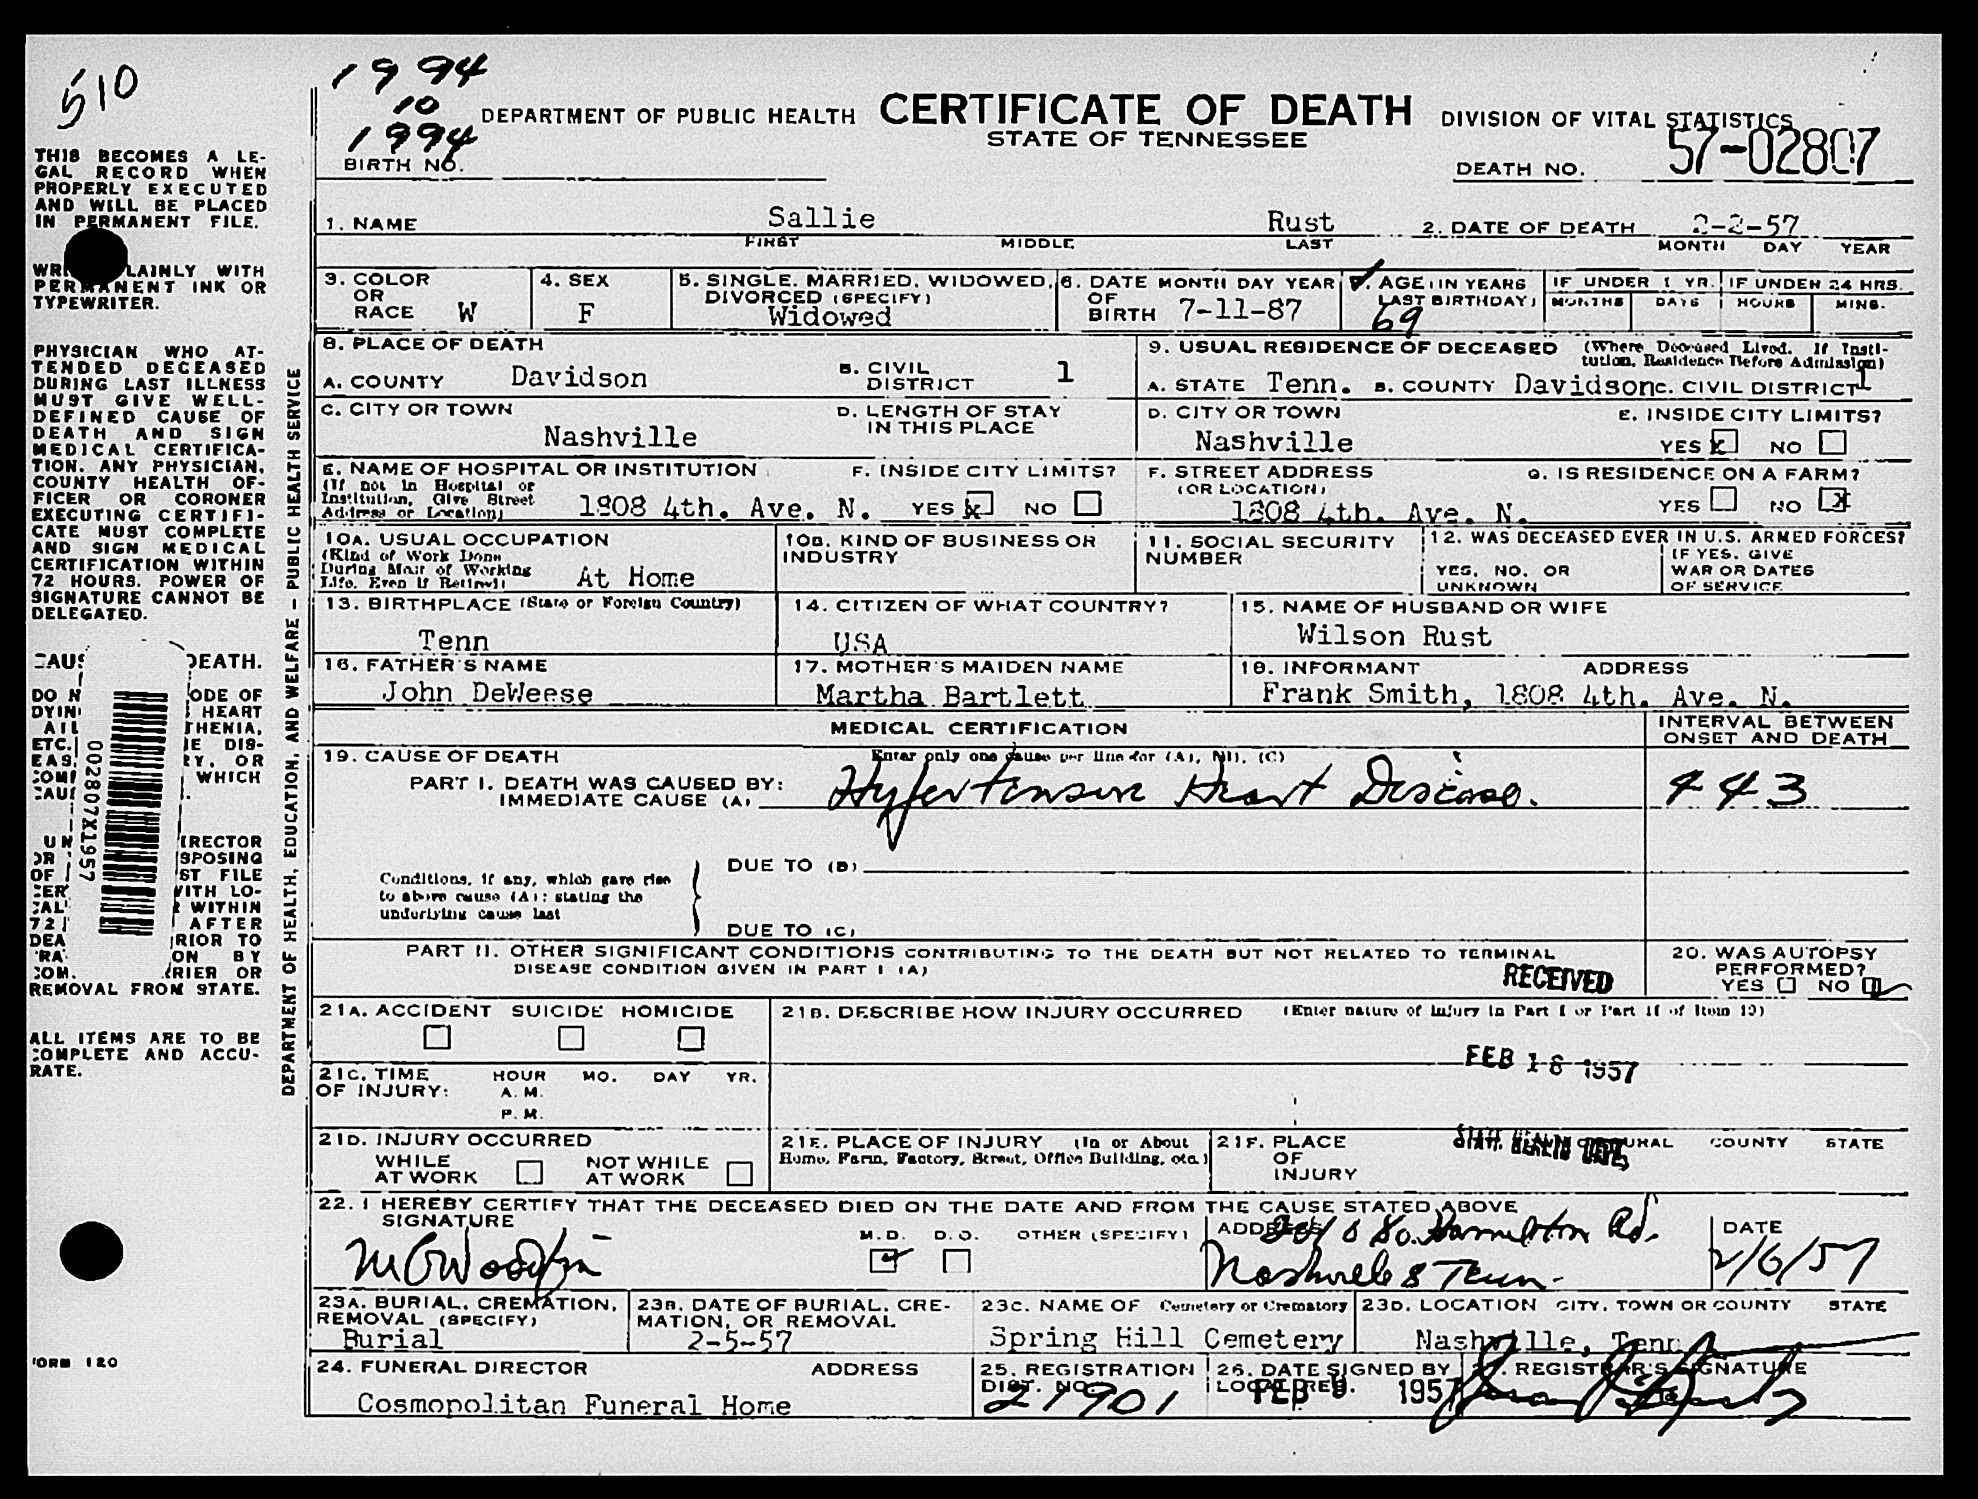 510
1994
10
1994
DEPARTMENT OF PUBLIC HEALTH CERTIFICATE OF DEATH DIVISION OF VITAL STATISTICS
STATE OF TENNESSEE
BIRTH NO. DEATH NO. 57-02807
THIS BECOMES A LE-
GAL RECORD WHEN
PROPERLY EXECUTED
AND WILL BE PLACED
IN PERMANENT FILE.
WR LAINLY WITH
PERMANENT INK OR
TYPEWRITER.
PHYSICIAN WHO AT-
TENDED DECEASED
DURING LAST ILLNESS
MUST GIVE WELL-
DEFINED CAUSE OF
DEATH AND SIGN
MEDICAL CERTIFICA-
TION. ANY PHYSICIAN,
COUNTY HEALTH OF-
FICER OR CORONER
EXECUTING CERTIFI-
CATE MUST COMPLETE
AND SIGN MEDICAL
CERTIFICATION WITHIN
72 HOURS. POWER OF
SIGNATURE CANNOT BE
DELEGATED.
CAUS DEATH.
DO N ODE OF
DYIN HEART
AIL THENIA,
ETC. E DIS-
EAS, RY, OR
COMP WHICH
CAUS
UN IRECTOR
OR SPOSING
OF ST FILE
CER WITH LO-
CAL WITHIN
72 AFTER
DEA RIOR TO
TRA ON BY
COM. RRIER OR
REMOVAL FROM STATE.
ALL ITEMS ARE TO BE
COMPLETE AND ACCU-
RATE.
FORM 120
002807X1957
DEPARTMENT OF HEALTH, EDUCATION, AND WELFARE - PUBLIC HEALTH SERVICE
1. NAME Sallie Rust 2. DATE OF DEATH 2-2-57
FIRST MIDDLE LAST MONTH DAY YEAR
3. COLOR OR RACE W
4. SEX F
5. SINGLE, MARRIED, WIDOWED, DIVORCED (SPECIFY) Widowed
6. DATE OF BIRTH MONTH DAY YEAR 7-11-87
7. AGE (IN YEARS LAST BIRTHDAY) 69
IF UNDER 1 YR. MONTHS DAYS
IF UNDER 24 HRS. HOURS MINS.
8. PLACE OF DEATH
A. COUNTY Davidson B. CIVIL DISTRICT 1
C. CITY OR TOWN Nashville D. LENGTH OF STAY IN THIS PLACE
E. NAME OF HOSPITAL OR INSTITUTION (If not in Hospital or Institution, Give Street Address or Location) 1808 4th. Ave. N.
F. INSIDE CITY LIMITS? YES X NO
9. USUAL RESIDENCE OF DECEASED (Where Deceased Lived. If Institution, Residence Before Admission)
A. STATE Tenn. B. COUNTY Davidson C. CIVIL DISTRICT 1
D. CITY OR TOWN Nashville E. INSIDE CITY LIMITS? YES X NO
F. STREET ADDRESS (OR LOCATION) 1808 4th. Ave. N.
G. IS RESIDENCE ON A FARM? YES NO X
10A. USUAL OCCUPATION (Kind of Work Done During Most of Working Life, Even If Retired) At Home
10B. KIND OF BUSINESS OR INDUSTRY
11. SOCIAL SECURITY NUMBER
12. WAS DECEASED EVER IN U.S. ARMED FORCES?
YES, NO, OR UNKNOWN IF YES, GIVE WAR OR DATES OF SERVICE
13. BIRTHPLACE (State or Foreign Country) Tenn
14. CITIZEN OF WHAT COUNTRY? USA
15. NAME OF HUSBAND OR WIFE Wilson Rust
16. FATHER'S NAME John DeWeese
17. MOTHER'S MAIDEN NAME Martha Bartlett
18. INFORMANT ADDRESS Frank Smith, 1808 4th. Ave. N.
MEDICAL CERTIFICATION
INTERVAL BETWEEN ONSET AND DEATH
19. CAUSE OF DEATH Enter only one cause per line for (A), (B), (C)
PART I. DEATH WAS CAUSED BY:
IMMEDIATE CAUSE (A) Hypertensive Heart Disease. 443
DUE TO (B)
Conditions, if any, which gave rise
to above cause (A); stating the
underlying cause last
DUE TO (C)
PART II. OTHER SIGNIFICANT CONDITIONS CONTRIBUTING TO THE DEATH BUT NOT RELATED TO TERMINAL
DISEASE CONDITION GIVEN IN PART I (A)
20. WAS AUTOPSY PERFORMED? YES NO
RECEIVED
FEB 18 1957
21A. ACCIDENT SUICIDE HOMICIDE
21B. DESCRIBE HOW INJURY OCCURRED (Enter nature of injury in Part I or Part II of Item 19)
21C. TIME OF INJURY: HOUR MO. DAY YR.
A. M.
P. M.
21D. INJURY OCCURRED
WHILE AT WORK NOT WHILE AT WORK
21E. PLACE OF INJURY (In or About Home, Farm, Factory, Street, Office Building, etc.)
21F. PLACE OF INJURY RURAL COUNTY STATE
22. I HEREBY CERTIFY THAT THE DECEASED DIED ON THE DATE AND FROM THE CAUSE STATED ABOVE
SIGNATURE M.D. D.O. OTHER (SPECIFY) ADDRESS Hamilton Rd. DATE
Nashville 8 Tenn. 2/6/57
23A. BURIAL, CREMATION, REMOVAL (SPECIFY) Burial
23B. DATE OF BURIAL, CREMATION, OR REMOVAL 2-5-57
23C. NAME OF Cemetery or Crematory Spring Hill Cemetery
23D. LOCATION CITY, TOWN OR COUNTY STATE Nashville, Tenn
24. FUNERAL DIRECTOR ADDRESS Cosmopolitan Funeral Home
25. REGISTRATION DIST. NO. 21901
26. DATE SIGNED BY LOCAL REG. FEB 1957
27. REGISTRAR'S SIGNATURE